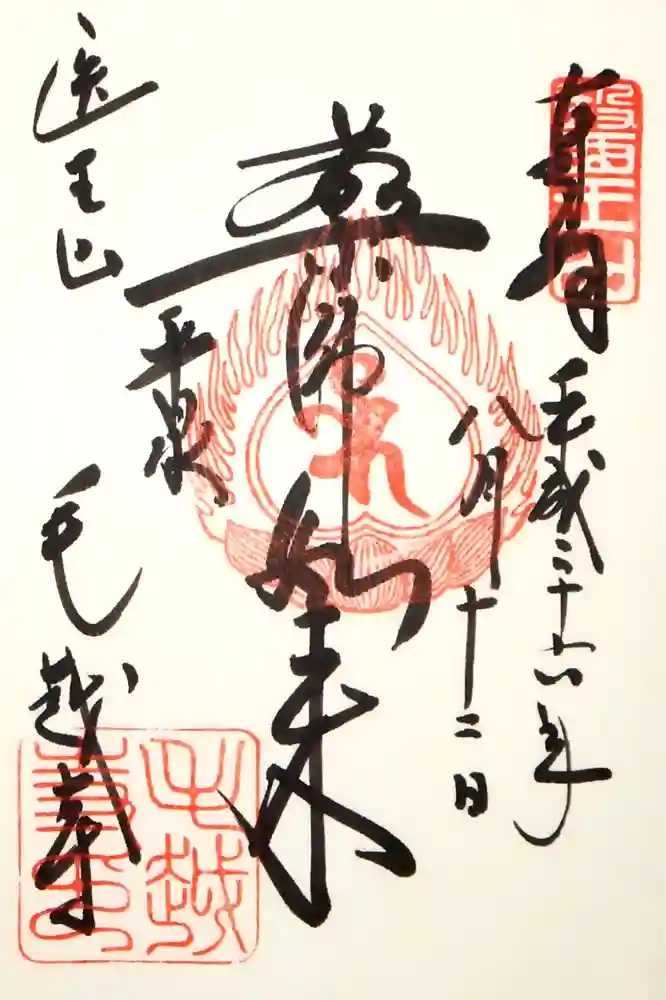 奉拝
平成二十六年
八月十二日
薬師如来
平泉
医王山
毛越寺
醫王山
毛越
寺印